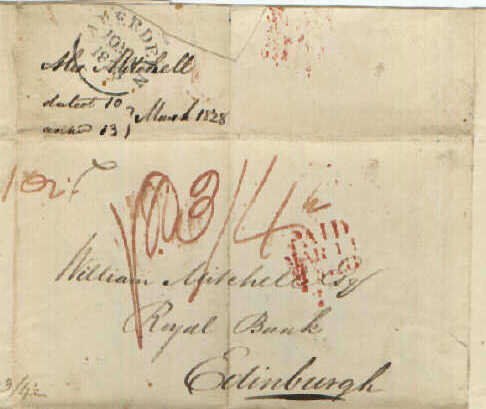 ABERDEEN
Mrs Mitchell
dated 10
March 1828
13
3/4
PAID
MAR 11
William Mitchell Esq
Royal Bank
Edinburgh